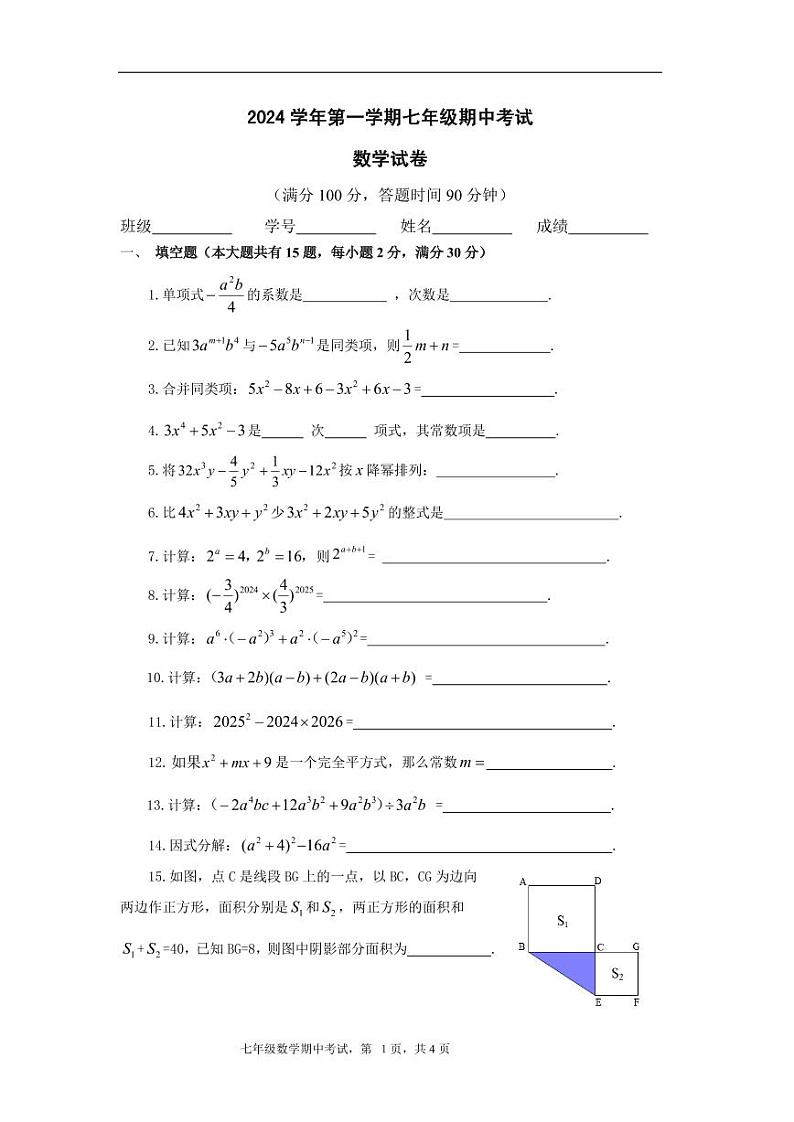 2024 学年第一学期七年级期中考试
数学试卷
（满分 100 分，答题时间 90 分钟）
班级__________ 学号__________ 姓名__________ 成绩__________
一、 填空题（本大题共有 15 题，每小题 2 分，满分 30 分）
1.单项式 $-\frac{a^2b}{4}$ 的系数是____________ ，次数是______________.
2.已知 $3a^{m+1}b^4$ 与 $-5a^5b^{n-1}$ 是同类项，则 $\frac{1}{2}m+n$ =_____________.
3.合并同类项：$5x^2-8x+6-3x^2+6x-3$ =___________________.
4. $3x^4+5x^2-3$ 是______ 次______ 项式，其常数项是__________.
5.将 $32x^3y-\frac{4}{5}y^2+\frac{1}{3}xy-12x^2$ 按 $x$ 降幂排列：_________________.
6.比 $4x^2+3xy+y^2$ 少 $3x^2+2xy+5y^2$ 的整式是_________________________.
7.计算：$2^a=4，2^b=16$，则 $2^{a+b+1}$ = ________________________________.
8.计算：$(-\frac{3}{4})^{2024}\times(\frac{4}{3})^{2025}$ =________________________________.
9.计算：$a^6\cdot(-a^2)^3+a^2\cdot(-a^5)^2$ =__________________________________.
10.计算：$(3a+2b)(a-b)+(2a-b)(a+b)$ =_________________________.
11.计算：$2025^2-2024\times2026$ =_____________________________________.
12. 如果 $x^2+mx+9$ 是一个完全平方式，那么常数 $m=$__________________.
13.计算：$(-2a^4bc+12a^3b^2+9a^2b^3)\div3a^2b$ =________________________.
14.因式分解：$(a^2+4)^2-16a^2$ =______________________________________.
15.如图，点 C 是线段 BG 上的一点，以 BC，CG 为边向
两边作正方形，面积分别是 $S_1$ 和 $S_2$，两正方形的面积和
$S_1$+$S_2$=40，已知 BG=8，则图中阴影部分面积为____________.
A D
S₁
B C G
S₂
E F
七年级数学期中考试，第 1 页，共 4 页